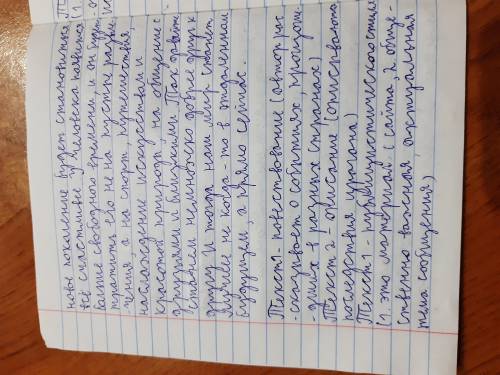 новые поколение будет становиться
всё счастливее. У человека появится
больше свободного времени и он будет
тратить его не на пустые развле
-чения, а на спорт, путешествия,
наслаждение искусством и
красотой природы, на общение с
друзьями и близкими. Так давайте
станем немножко добрее друг к
другу и тогда наш мир станет
лучше не когда-то в отдаленном
будущем, а прямо сейчас.
Текст 1 - повествование (автор рас
-сказывает о событиях, произоше
-дших в разных странах)
Текст 2 - описание (описывается
последствия урагана)
Текст 1 - публицистического стиля
(1. это материал с сайта, 2. обще-
ственно важная, актуальная
тема сообщения)